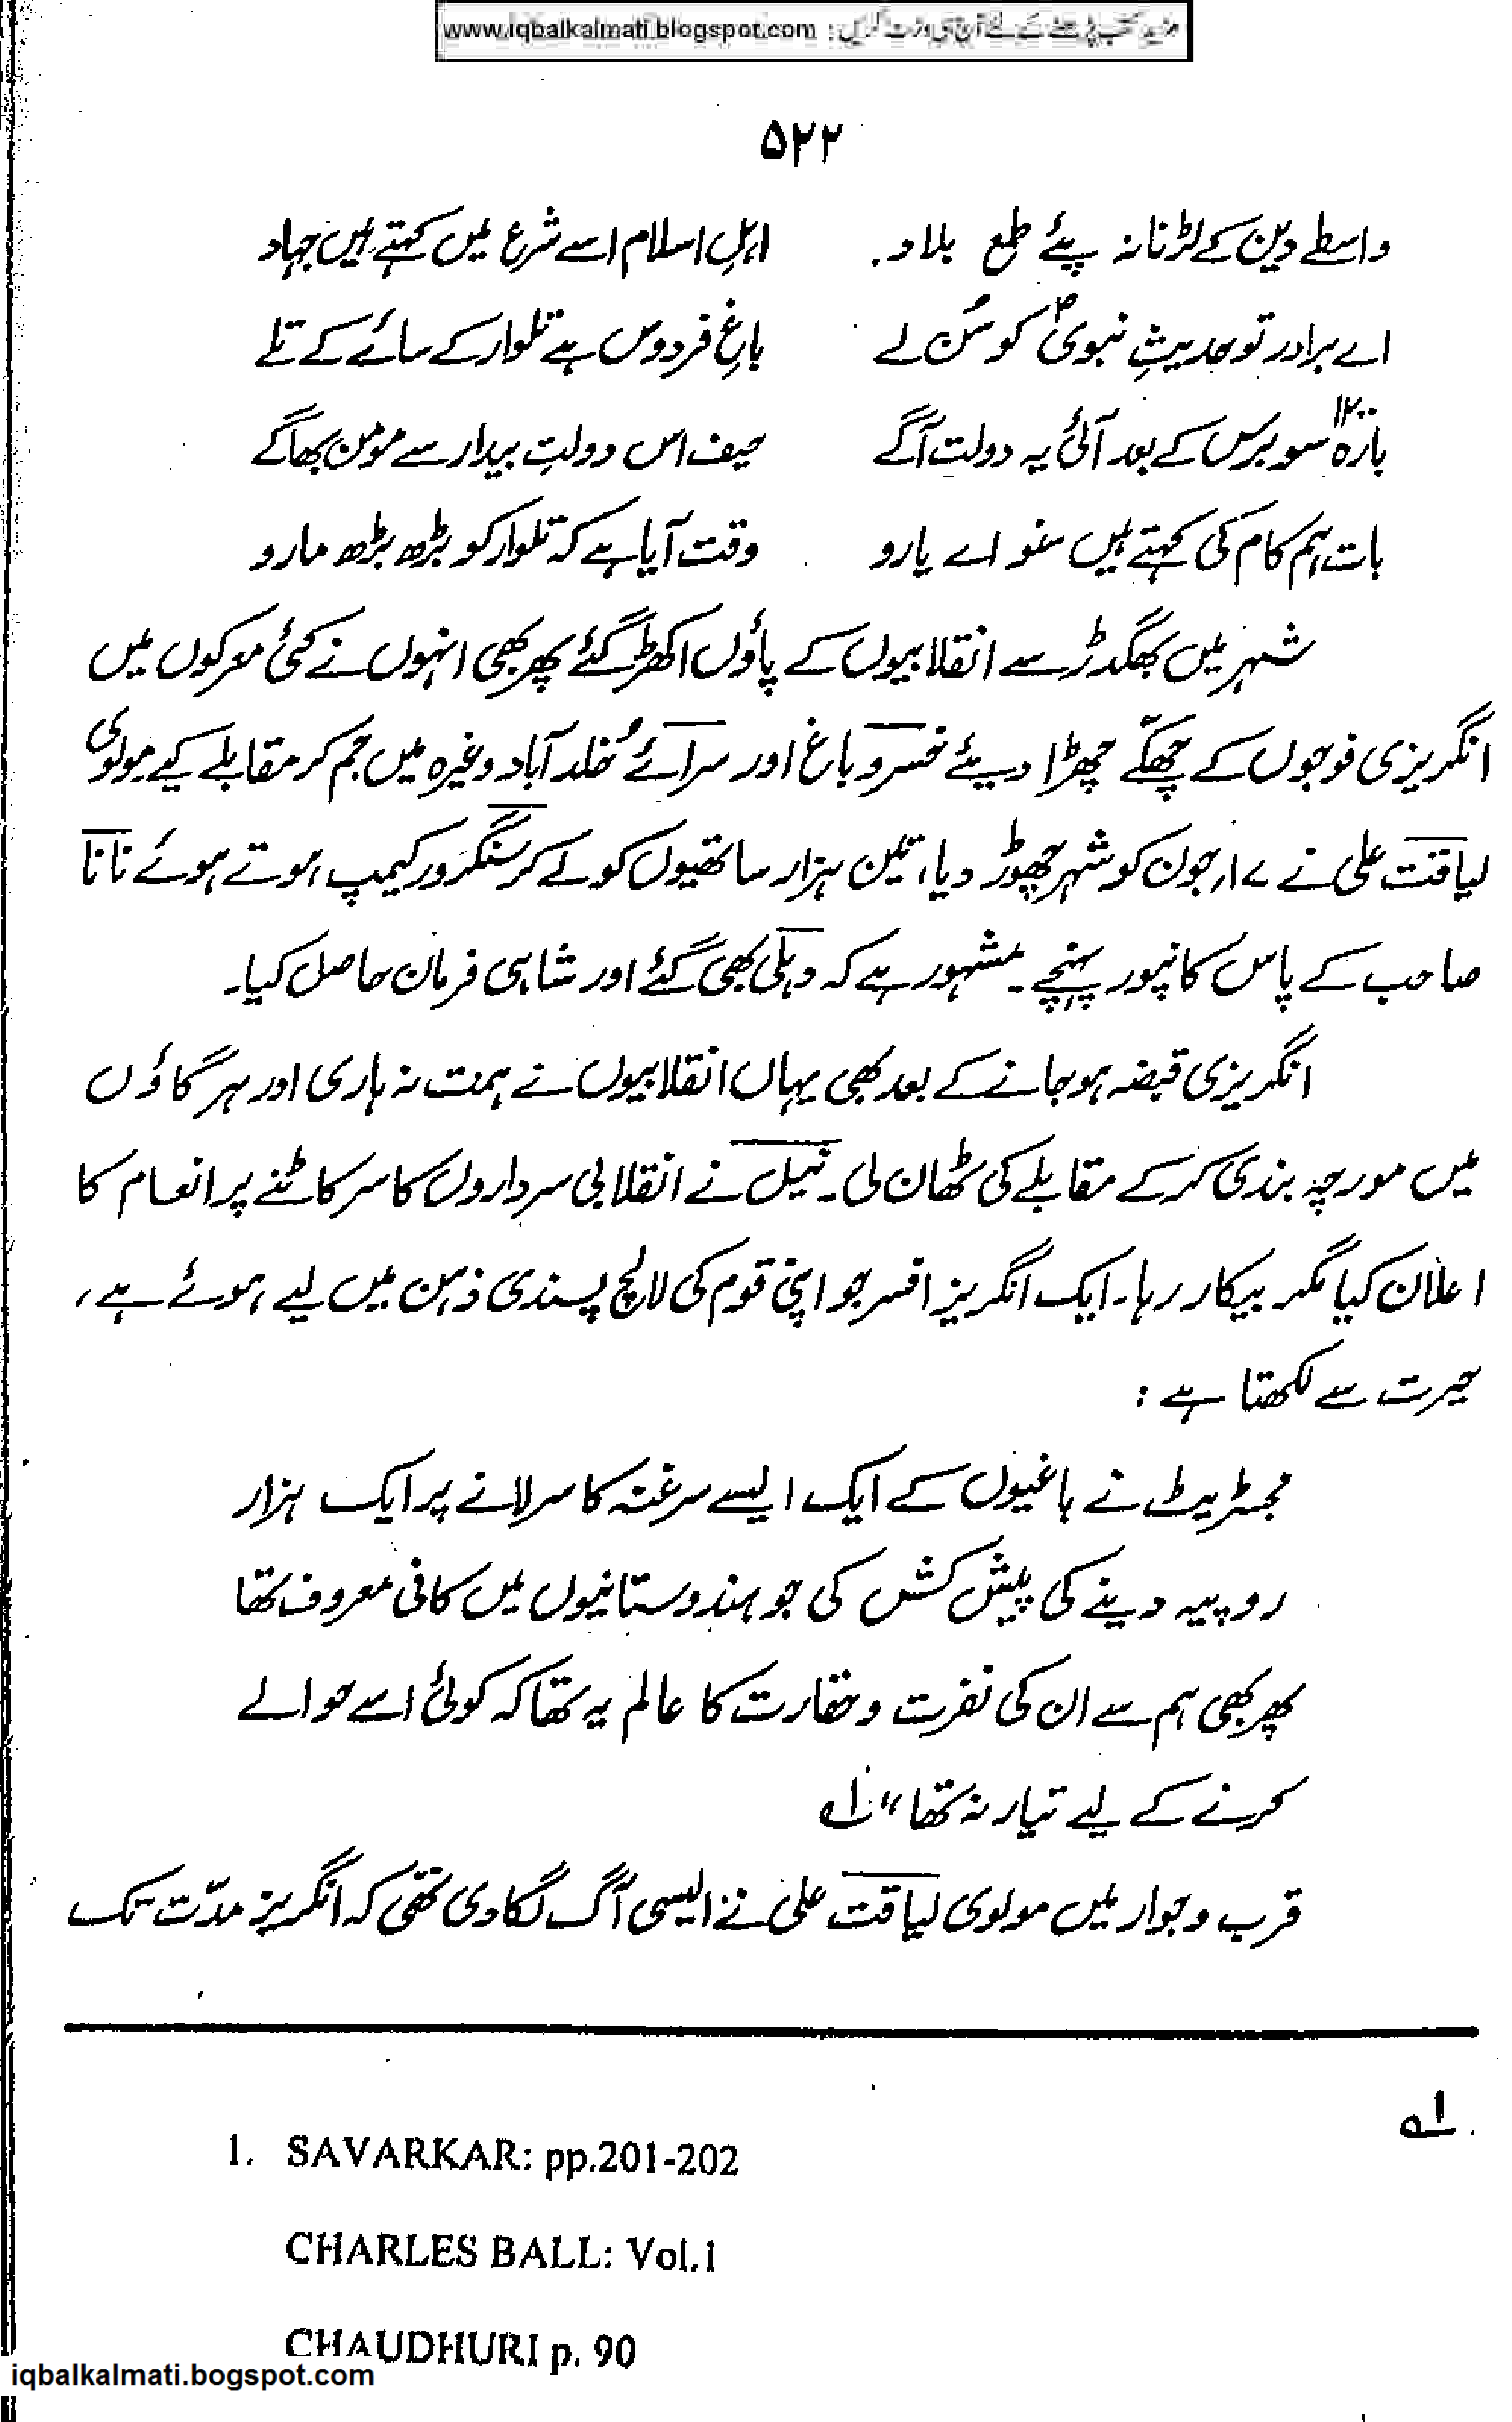 مزید کتب پڑھنے کے لئے آج ہی وزٹ کریں : www.iqbalkalmati.blogspot.com
۵۲۲
واسطے دین کے لڑنا نہ پئے طمع بلاد۔ اہلِ اسلام اسے شرع میں کہتے ہیں جہاد
اے برادر تو حدیثِ نبویؐ کو سُن لے باغِ فردوس ہے تلوار کے سائے کے تلے
بارہ ۱۲۰۰ سو برس کے بعد آئی یہ دولت آگے حیف اس دولتِ بیدار سے مومن بھاگے
بات ہم کام کی کہتے ہیں سنو اے یارو وقت آیا ہے کہ تلوار کو بڑھ بڑھ مارو
شہر میں بھگدڑ سے انقلابیوں کے پاؤں اکھڑ گئے پھر بھی انہوں نے کئی معرکوں میں
انگریزی فوجوں کے چھکّے چھڑا دیئے خسرو باغ اور سرائے خُلد آباد وغیرہ میں جم کر مقابلے کیے مولوی
لیاقت علی نے ۱۷؍جون کو شہر چھوڑ دیا، تین ہزار ساتھیوں کو لے کر سنگرور کیمپ ہوتے ہوئے نانا
صاحب کے پاس کانپور پہنچے۔ مشہور ہے کہ دہلی بھی گئے اور شاہی فرمان حاصل کیا۔
انگریزی قبضہ ہو جانے کے بعد بھی یہاں انقلابیوں نے ہمت نہ ہاری اور ہر گاؤں
میں مورچہ بندی کر کے مقابلے کی ٹھان لی۔ نیل نے انقلابی سرداروں کا سر کاٹنے پر انعام کا
اعلان کیا مگر بیکار رہا۔ ایک انگریز افسر جو اپنی قوم کی لالچ پسندی ذہن میں لیے ہوئے ہے،
حیرت سے لکھتا ہے :
مجسٹریٹ نے باغیوں کے ایک ایسے سرغنہ کا سر لانے پر ایک ہزار
روپیہ دینے کی پیش کش کی جو ہندوستانیوں میں کافی معروف تھا
پھر بھی ہم سے ان کی نفرت و حقارت کا عالم یہ تھا کہ کوئی اسے حوالے
کرنے کے لیے تیار نہ تھا" ۱؎
قرب و جوار میں مولوی لیاقت علی نے ایسی آگ لگا دی تھی کہ انگریز مدّت تک
۱؎
1. SAVARKAR: pp.201-202
CHARLES BALL: Vol.1
CHAUDHURI p. 90
iqbalkalmati.bogspot.com